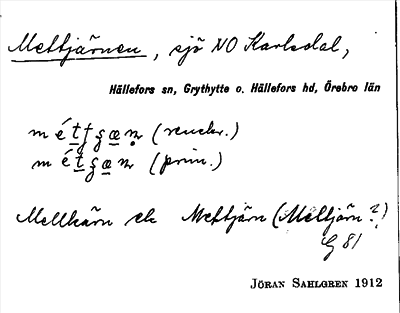 Mettjärnen, sjö NO Karlsdal,
Hällefors sn, Grythytte o. Hällefors hd, Örebro län
(renskr.)
(prim.)
Mellkärn ek Mettjärn (Mältjärn?)
G 81
JÖRAN SAHLGREN 1912